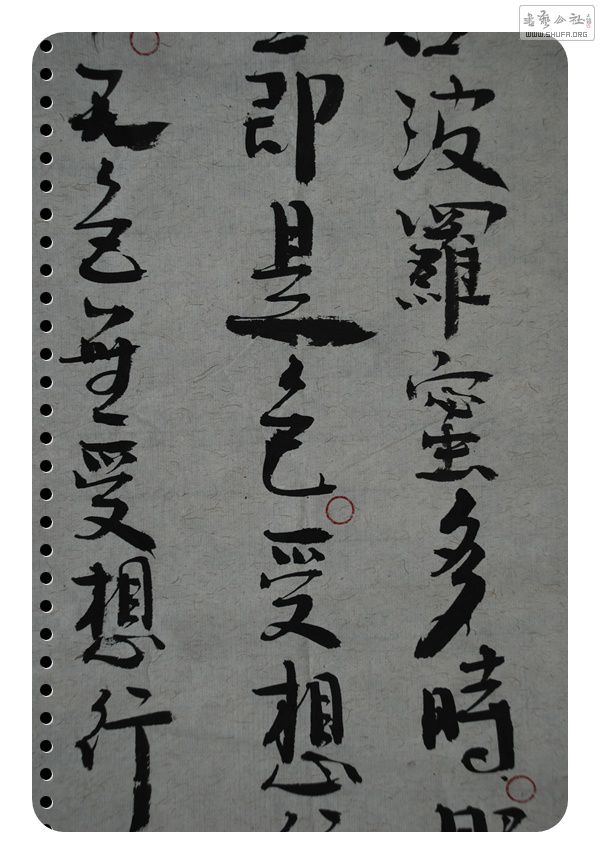 波羅蜜多時
即是色受想
无色無受想行
書藝公社
WWW.SHUFA.ORG